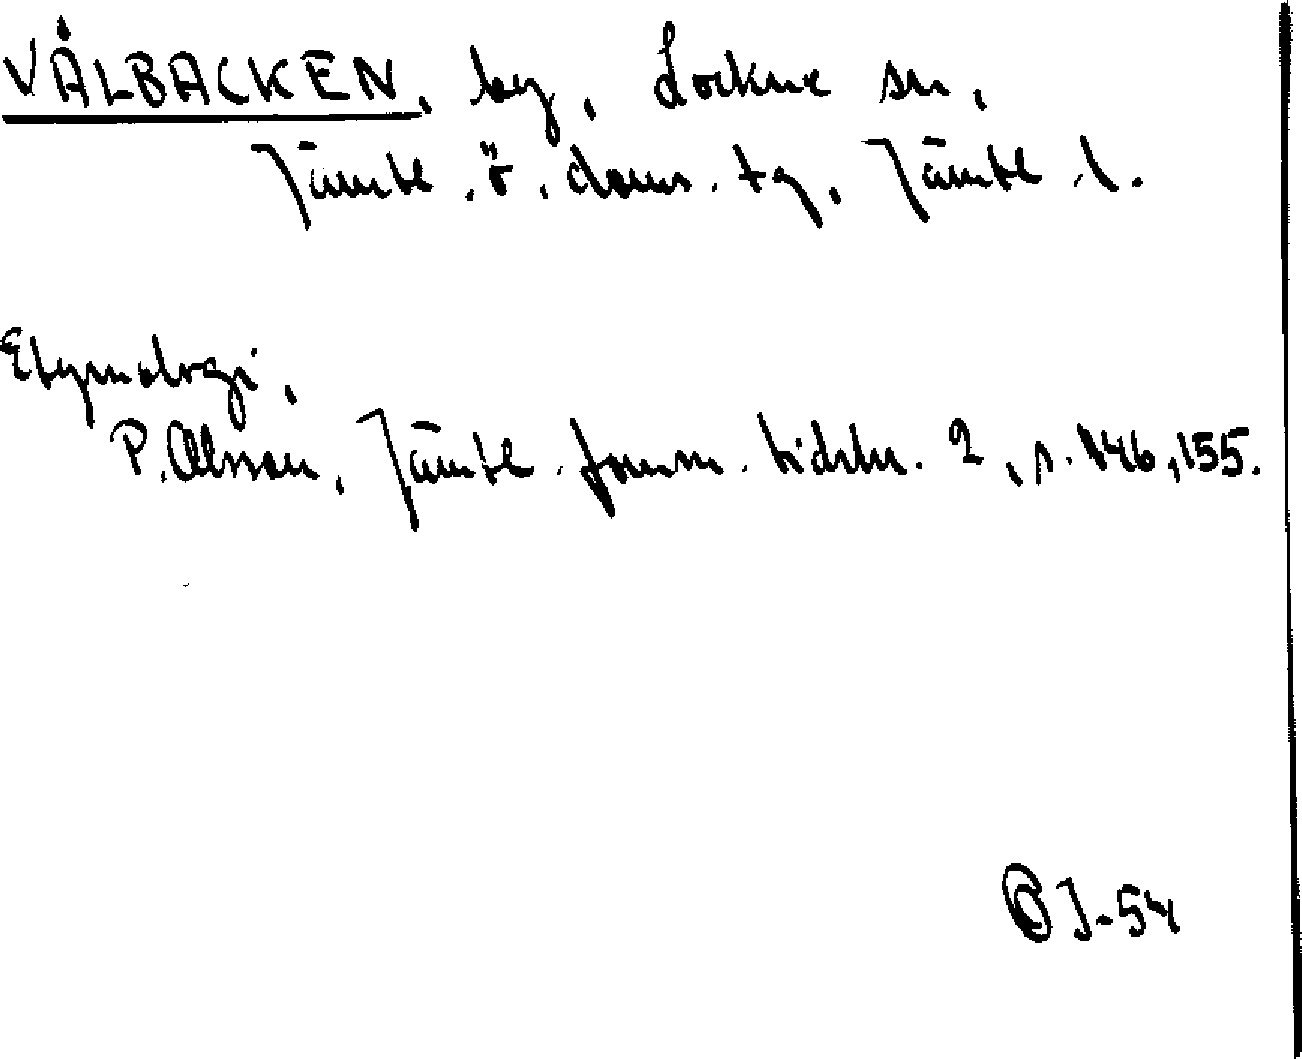 VÅLBACKEN, by, Lockne sn,
Jämtl. ö. doms. tg, Jämtl. l.
Etymologi,
P. Olsson, Jämtl. fornm. tidskr. 2, s. 146, 155.
J-54